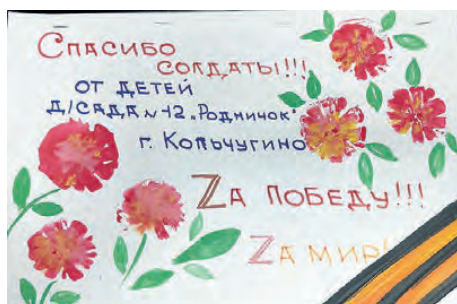 Спасибо
солдаты!!!
от детей
д/сада №12 „Родничок"
г. Кольчугино
Zа победу!!!
Zа мир!